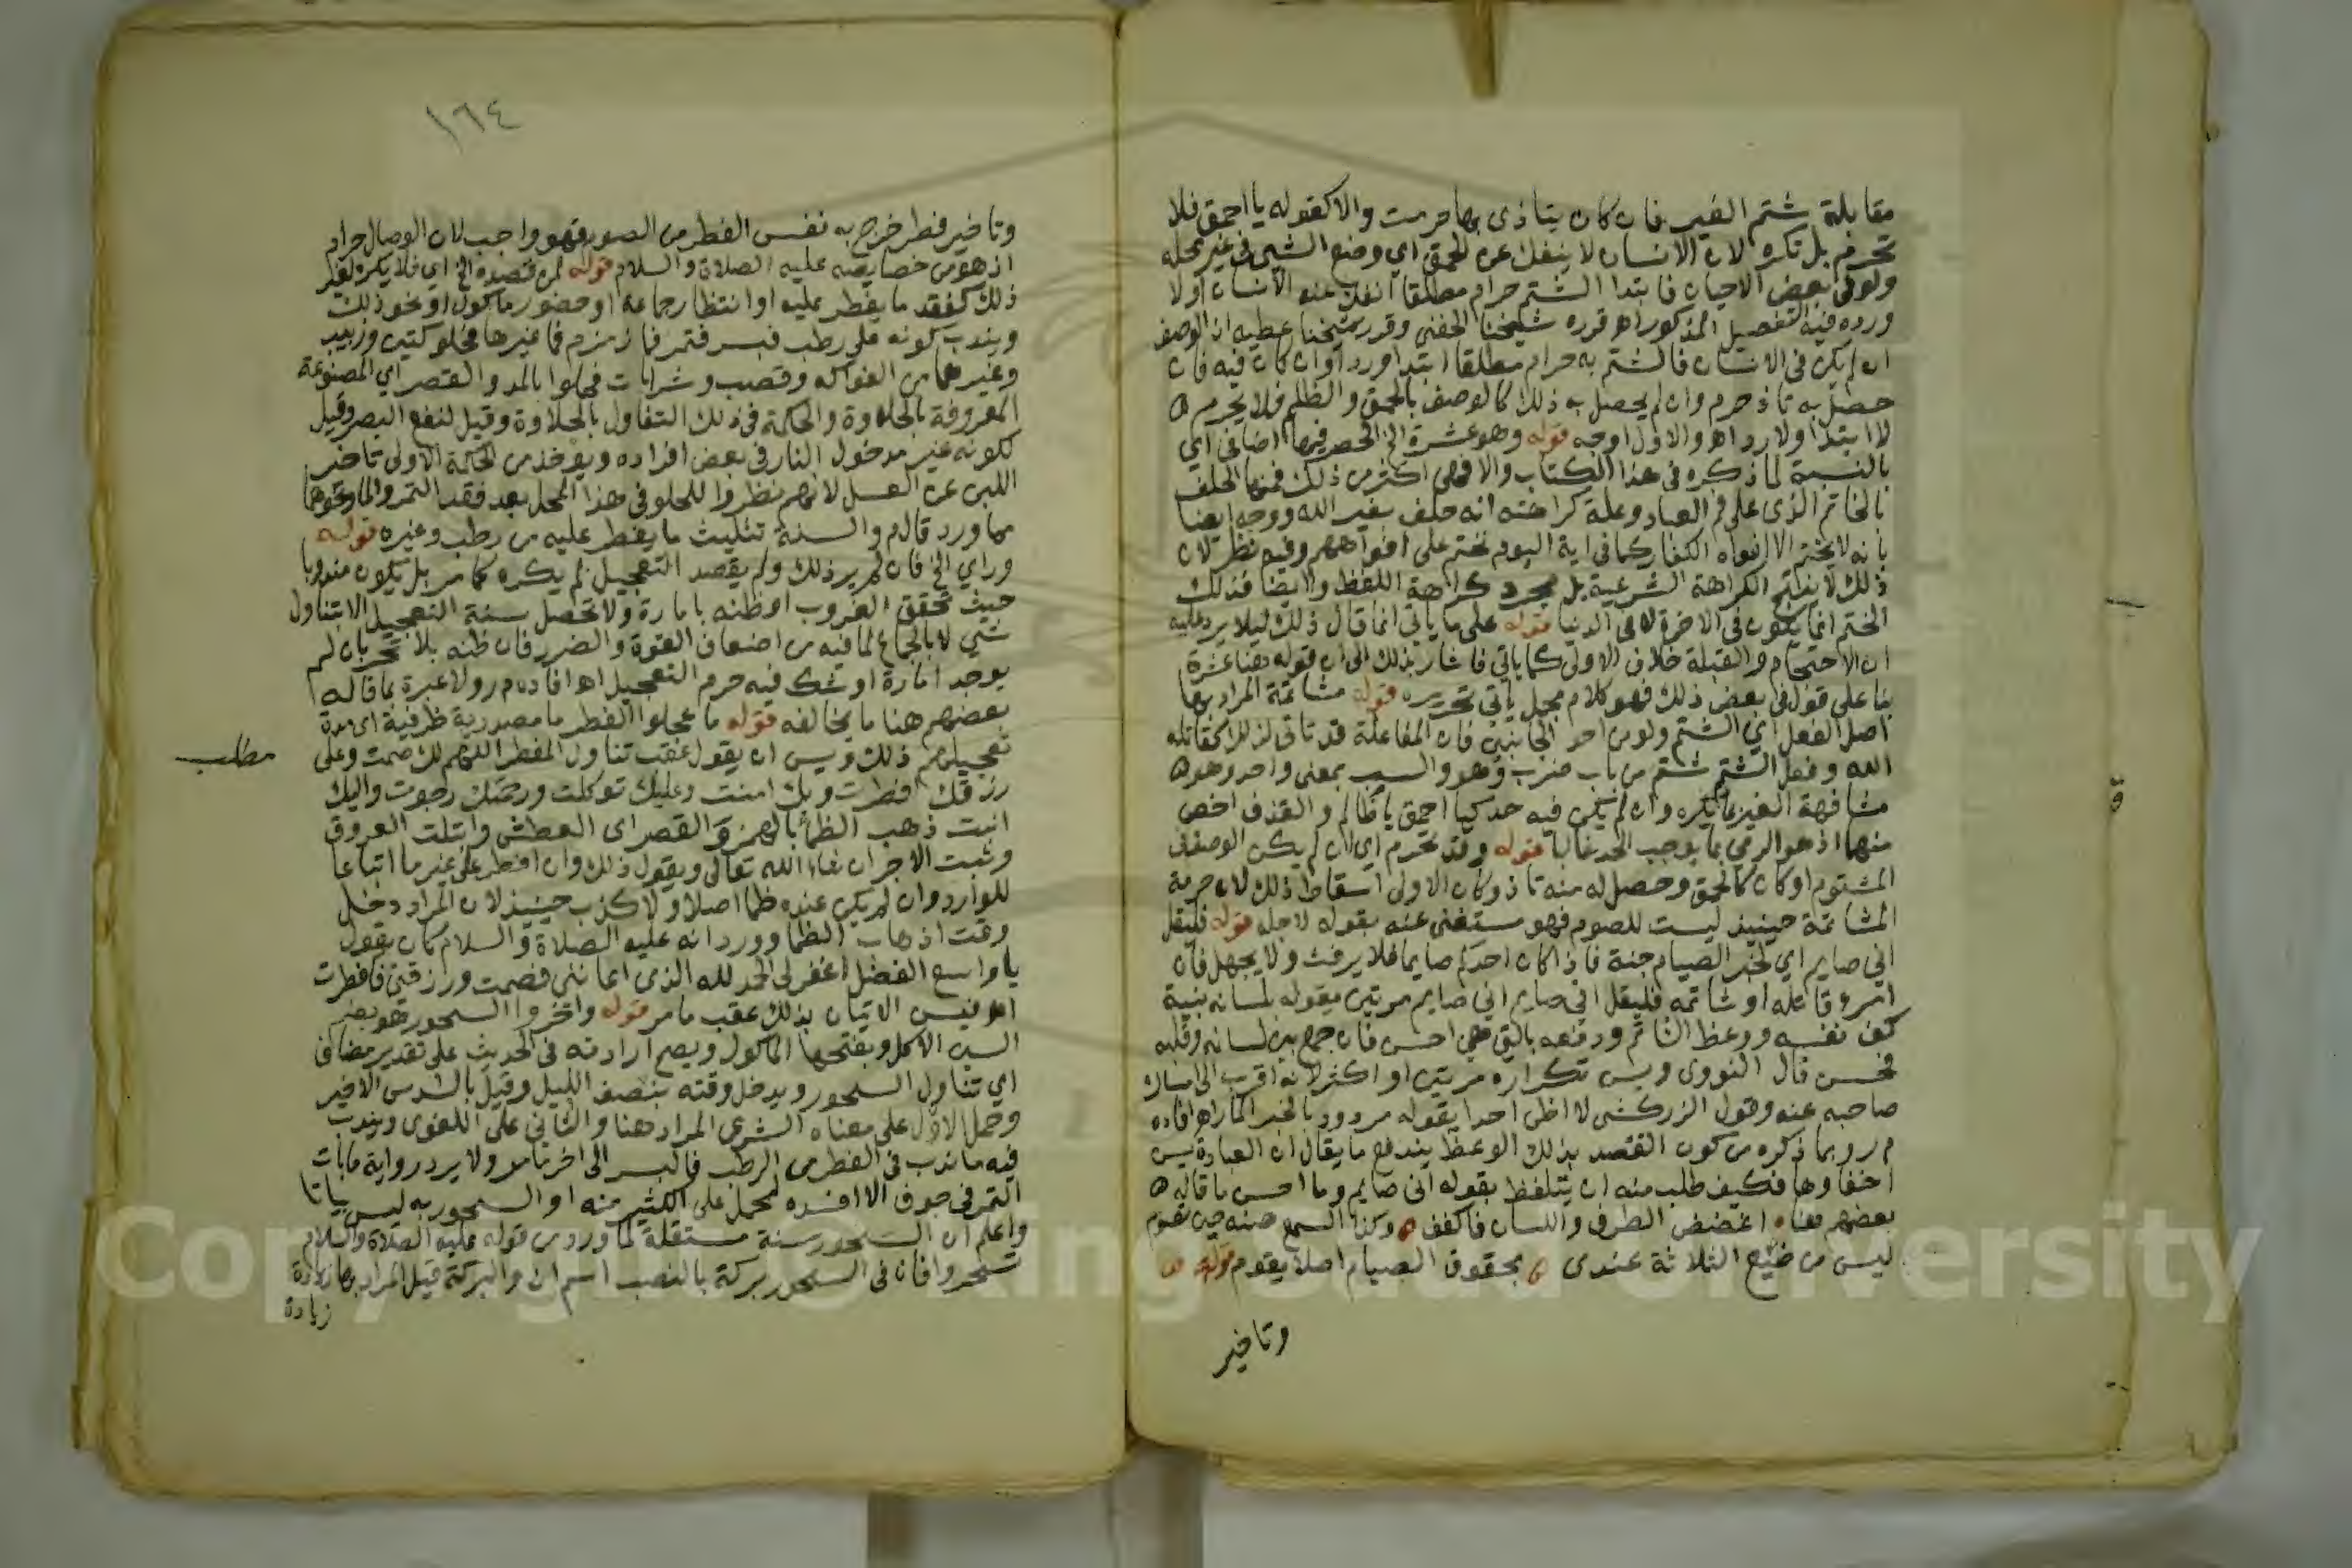 مقابلة شتم الغير فان كان يتاذى بها حرمت والا كقوله يا احمق فلا
تحرم بل تكره لان الانسان لا ينفك عن الحمق اي وضع الشي في غير محله
ولو في بعض الاحيان فابتدا الشتم حرام مطلقا انفك عنه الانسان اولا
ورده فيه التفصيل المذكور اه قرره شيخنا الحفني وقرر شيخنا عطيه ان الوصف
ان لم يكن في الانسان فالشتم به حرام مطلقا ابتدا وردا وان كان فيه فان
حصل به تاذ حرم وان لم يحصل به ذلك كالوصف بالحمق والظلم فلا يحرم
لا ابتدا ولا ردا اه والاول اوجه قوله وهو عشرة الخ الحصر فيها اضافي اي
بالنسبة لما ذكره في هذا الكتاب والا فهي اكثر من ذلك فمنها الحلف
بالخاتم الذي على فم العباد وعلة كراهته انه حلف بغير الله ووجه ايضا
بانه لا يختم الا افواه الكفار كما في اية اليوم نختم على افواههم وفيه نظر لان
ذلك لا ينتج الكراهة الشرعية بل مجرد كراهة اللفظ وايضا فذلك
الختم انما يكون في الاخرة لا في الدنيا قوله على ما ياتي انما قال ذلك ليلا يرد عليه
ان الاحتجام والقبلة خلاف الاولى كما ياتي فاشار بذلك الى ان قوله هنا عشرة
بنا على قول في بعض ذلك فهو كلام مجمل ياتي تحريره قوله مشاتمة المراد بها
اصل الفعل اي الشتم ولو من احد الجانبين فان المفاعلة قد تاتي لذلك كقاتله
الله وفعل الشتم شتم من باب ضرب وهو والسب بمعنى واحد وهو
مشافهة الغير بما يكره وان لم يكن فيه حد كيا احمق يا ظالم والقذف اخص
منهما اذ هو الرمي بما يوجب الحد غالبا قوله وقد تحرم اي ان لم يكن الوصف في
المشتوم او كان كالحمق وحصل له منه تاذ وكان الاولى اسقاط ذلك لان حرمة
المشاتمة حينيذ ليست للصوم فهو مستغنى عنه بقوله لاجله قوله فليقل
اني صايم اي لخبر الصيام جنة فاذا كان احدكم صايما فلا يرفث ولا يجهل فان
امرء قاتله او شاتمه فليقل اني صايم اني صايم مرتين يقوله بلسانه بنية
كف نفسه ووعظ الشاتم ودفعه بالتي هي احسن فان جمع بين لسانه وقلبه
فحسن قال النووي ويسن تكراره مرتين او اكثر لانه اقرب الى امساك
صاحبه عنه وقول الزركشي لا اظن احدا يقوله مردود بالخبر المار اه افاده
م ر وبما ذكره من كون القصد بذلك الوعظ يندفع ما يقال ان العبادة يسن
اخفاوها فكيف طلب منه ان يتلفظ بقوله اني صايم وما احسن ما قاله
بعضهم معناه اغضض الطرف واللسان فاكفف وكذا السمع صنه حين تصوم
ليس من ضيع الثلاثة عندي بحقوق الصيام اصلا يقوم قوله
وتاخير
١٦٤
وتاخير فطر خرج به نفس الفطر من الصوم فهو واجب لان الوصال حرام
اذ هو من خصايصه عليه الصلاة والسلام قوله لمن قصده الخ اي فلا يكره لغير
ذلك كفقد ما يفطر عليه او انتظار جماعة او حضور ماكول او نحو ذلك
ويندب كونه على رطب فبسر فتمر فما زمزم فما غيرها فحلو كتين وزبيب
وغيرهما من الفواكه وقصب وشرابات فحلوا بالمد والقصر اي المصنوعة
المعروفة بالحلاوة والحكمة في ذلك التفاول بالحلاوة وقيل لنفع البصر وقيل
لكونه غير مدخول النار في بعض افراده ويوخذ من الحكمة الاولى تاخير
اللبن عن العسل لانهم نظروا للحلو في هذا المحل بعد فقد التمر والما ونحوهما
مما ورد قال م ر والسنة تثليث ما يفطر عليه من رطب وغيره قوله
وراي الخ فان لم ير ذلك ولم يقصد التعجيل لم يكره كما مر بل يكون مندوبا
حيث تحقق الغروب او ظنه بامارة ولا تحصل سنة التعجيل الا بتناول
شي لا بالجماع لما فيه من اضعاف القوة والضرر فان ظنه بلا تحر بان لم
يوجد امارة او شك فيه حرم التعجيل اه افاده م ر ولا عبرة بما قاله
بعضهم هنا ما يخالفه قوله ما عجلوا الفطر ما مصدرية ظرفية اي مدة
تعجيلهم ذلك ويسن ان يقول عقب تناول المفطر اللهم لك صمت وعلى
رزقك افطرت وبك امنت وعليك توكلت ورحمتك رجوت واليك
انبت ذهب الظما بالهمز والقصر اي العطش وابتلت العروق
وثبت الاجر ان شاء الله تعالى ويقول ذلك وان افطر على غير ما اتباعا
للوارد وان لم يكن عنده ظما اصلا ولا كذب حينيذ لان المراد دخل
وقت اذهاب الظما وورد انه عليه الصلاة والسلام كان يقول
يا واسع الفضل اغفر لي الحمد لله الذي اعانني فصمت ورزقني فافطرت
اه فيسن الاتيان بذلك عقب ما مر قوله واخروا السحور هو بضم
السين الاكل وبفتحها الماكول ويصح ارادته في الحديث على تقدير مضاف
اي تناول السحور ويدخل وقته بنصف الليل وقيل بالسدس الاخير
وحمل الاول على معناه الشرعي المراد هنا والثاني على اللغوي ويندب
فيه ما ندب في الفطر من الرطب فالبسر الى اخر ما مر ولا يرد رواية ما بات
التمر في جوف الا افسده لحمله على الكثير منه او السحور به ليس بياتا
واعلم ان السحور سنة مستقلة لما ورد من قوله عليه الصلاة والسلام
تسحروا فان في السحور بركة بالنصب اسم ان والبركة قيل المراد بها زيادة
زيادة
مطلب